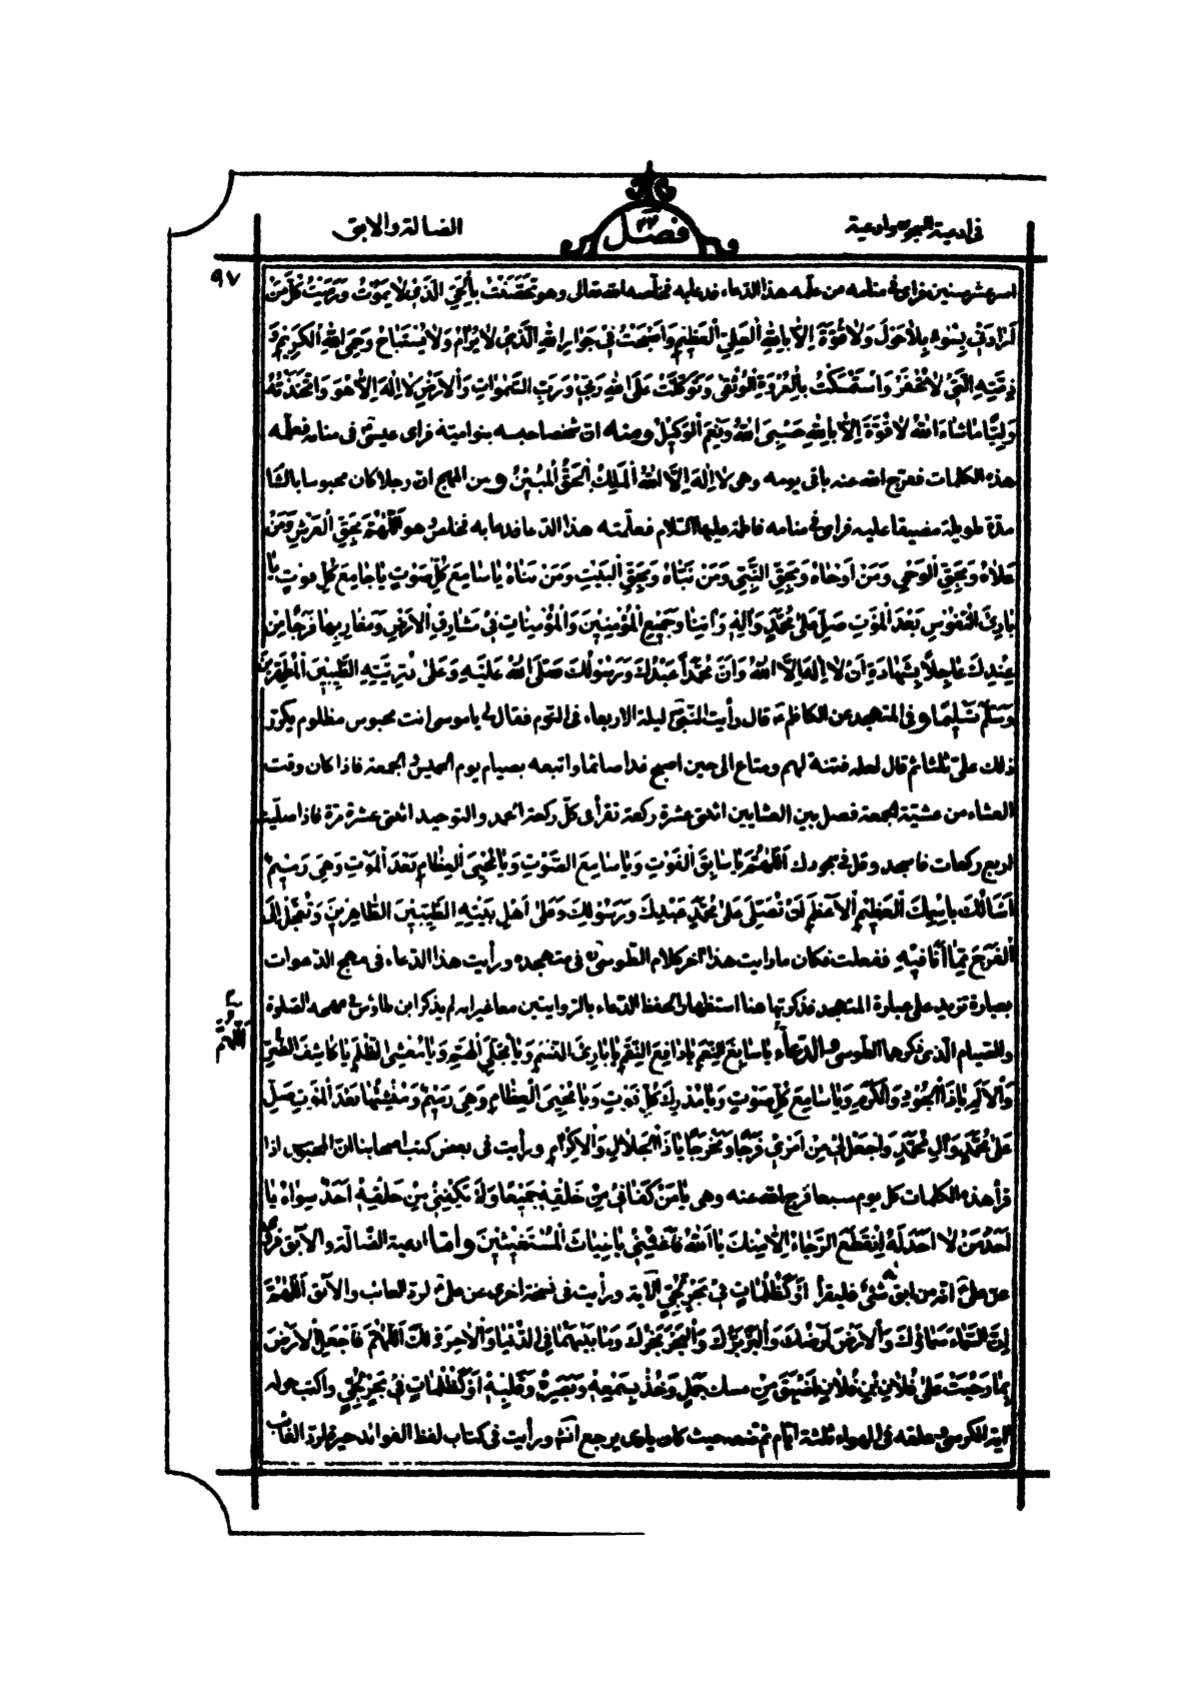 فى ادعية المسجون وادعية
فصل ٢٢
الضالة والابق
٩٧
اسر عشر سنين فراى فى منامه من علّمه هذا الدعاء فدعا به فخلّصه الله تعالى وهو تَحَصَّنْتُ بِالْحَيِّ الَّذِي لاٰ يَمُوتُ وَرَمَيْتُ كُلَّ مَنْ
اَرٰادَنِي بِسُوءٍ بِلاٰحَوْلَ وَلاٰ قُوَّةَ اِلاّٰ بِاللهِ الْعَلِيِّ الْعَظِيمِ وَاَصْبَحْتُ فِي جَوٰارِ اللهِ الَّذِي لاٰ يُرٰامُ وَلاٰ يُسْتَبٰاحُ وَحِمَى اللهِ الْكَرِيمِ وَ
ذِمَّتِهِ الَّتِي لاٰ تُخْفَرُ وَاسْتَمْسَكْتُ بِالْعُرْوَةِ الْوُثْقىٰ وَتَوَكَّلْتُ عَلَى اللهِ رَبِّي وَرَبِّ السَّمٰوٰاتِ وَالْاَرْضِ لاٰ اِلٰهَ اِلاّٰ هُوَ وَاتَّخَذْتُهُ
وَلِيّاً مٰاشٰاءَ اللهُ لاٰ قُوَّةَ اِلاّٰ بِاللهِ حَسْبِيَ اللهُ وَنِعْمَ الْوَكِيلُ ومنه ان شخصا حبسه بنو امية فراى عيسى ع فى منامه فعلّمه
هذه الكلمات ففرّج الله عنه باقى يومه وهى لاٰ اِلٰهَ اِلاَّ اللهُ الْمَلِكُ الْحَقُّ الْمُبِينُ ومن المهج ان رجلا كان محبوسا بالشا
مدّة طويلة مضيقا عليه فراى فى منامه فاطمة عليها السلام فعلّمته هذا الدعا فدعا به فخلص هو اَللّٰهُمَّ بِحَقِّ الْعَرْشِ وَمَنْ
عَلاٰهُ وَبِحَقِّ الْوَحْيِ وَمَنْ اَوْحٰاهُ وَبِحَقِّ النَّبِيِّ وَمَنْ نَبَّاهُ وَبِحَقِّ الْبَيْتِ وَمَنْ بَنٰاهُ يٰا سٰامِعَ كُلِّ صَوْتٍ يٰا جٰامِعَ كُلِّ فَوْتٍ يٰا
بٰارِئَ النُّفُوسِ بَعْدَ الْمَوْتِ صَلِّ عَلىٰ مُحَمَّدٍ وَاٰلِهِ وَاٰتِنٰا وَجَمِيعَ الْمُؤْمِنِينَ وَالْمُؤْمِنٰاتِ فِي مَشٰارِقِ الْاَرْضِ وَمَغٰارِبِهٰا فَرَجاً مِنْ
عِنْدِكَ عٰاجِلاً بِشَهٰادَةِ اَنْ لاٰ اِلٰهَ اِلاَّ اللهُ وَاَنَّ مُحَمَّداً عَبْدُكَ وَرَسُولُكَ صَلَّى اللهُ عَلَيْهِ وَعَلىٰ ذُرِّيَّتِهِ الطَّيِّبِينَ الطّاهِرِينَ
وَسَلَّمَ تَسْلِيماً و فى المتهجد عن الكاظم ع قال رأيت النبى ص ليلة الاربعاء فى النوم فقال لى يا موسى انت محبوس مظلوم يكرّر
ذلك علىّ ثلثا ثم قال لعله فتنة لهم ومتاع الى حين اصبح غدا صائما واتبعه بصيام يوم الخميس والجمعة فاذا كان وقت
العشاء من عشيّة الجمعة فصل بين العشايين اثنتى عشرة ركعة تقرأ فى كلّ ركعة الحمد والتوحيد اثنتى عشرة مرّة فاذا صلّيت
اربع ركعات فاسجد وقل فى سجودك اَللّٰهُمَّ يٰا سٰابِقَ الْفَوْتِ وَيٰا سٰامِعَ الصَّوْتِ وَيٰا مُحْيِيَ الْعِظٰامِ بَعْدَ الْمَوْتِ وَهِيَ رَمِيمٌ
اَسْاَلُكَ بِاسْمِكَ الْعَظِيمِ الْاَعْظَمِ اَنْ تُصَلِّيَ عَلىٰ مُحَمَّدٍ عَبْدِكَ وَرَسُولِكَ وَعَلىٰ اَهْلِ بَيْتِهِ الطَّيِّبِينَ الطّٰاهِرِينَ وَتُعَجِّلَ لِيَ
الْفَرَجَ مِمّٰا اَنَا فِيهِ ففعلت فكان ما رايت هذا آخر كلام الطوسى ره فى متهجده ورأيت هذا الدعاء فى مهج الدعوات
بعبارة تزيد على عبارة المتهجد فذكرتها هنا استظهارا لحفظ الدعاء بالروايتين معا غير انه لم يذكر ابن طاوس فى مهجه الصلوة
والصيام الذى ذكرها الطوسى والدعاء يٰا سٰابِغَ النِّعَمِ يٰا دٰافِعَ النِّقَمِ يٰا بٰارِئَ النَّسَمِ وَيٰا مُجَلِّيَ الْهِمَمِ وَيٰا مُغْشِيَ الظُّلَمِ يٰا كٰاشِفَ الضُّرِّ
وَالْاَلَمِ يٰا ذَا الْجُودِ وَالْكَرَمِ وَيٰا سٰامِعَ كُلِّ صَوْتٍ وَيٰا مُدْرِكَ كُلِّ فَوْتٍ وَيٰا مُحْيِيَ الْعِظٰامِ وَهِيَ رَمِيمٌ وَمُنْشِئَهٰا بَعْدَ الْمَوْتِ صَلِّ
عَلىٰ مُحَمَّدٍ وَاٰلِ مُحَمَّدٍ وَاجْعَلْ لِي مِنْ اَمْرِي فَرَجاً وَمَخْرَجاً يٰا ذَا الْجَلاٰلِ وَالْاِكْرٰامِ ورأيت فى بعض كتب اصحابنا ان المحبوس اذا
قرأ هذه الكلمات كل يوم سبعا فرج الله عنه وهى يٰا مَنْ كَفٰانِي مِنْ خَلْقِهِ جَمِيعاً وَلَمْ يَكْفِنِي مِنْ خَلْقِهِ اَحَدٌ سِوٰاهُ يٰا
اَحَدَ مَنْ لاٰ اَحَدَ لَهُ اِنْقَطَعَ الرَّجٰاءُ اِلاّٰ مِنْكَ يٰا اَللهُ فَاَغِثْنِي يٰا غِيٰاثَ الْمُسْتَغِيثِينَ و امّا ادعية الضّالّة والآبق
عن على ع انه من ابق له شئ فليقرأ اَوْ كَظُلُمٰاتٍ فِي بَحْرٍ لُجِّيٍّ الآية ورأيت فى نسخة اخرى عن على ع لردّ الغائب والآبق اَللّٰهُمَّ
اِنَّ السَّمٰاءَ سَمٰاؤُكَ وَالْاَرْضَ اَرْضُكَ وَالْبَرَّ بَرُّكَ وَالْبَحْرَ بَحْرُكَ وَمٰا بَيْنَهُمٰا فِي الدُّنْيٰا وَالْاٰخِرَةِ لَكَ اَللّٰهُمَّ فَاجْعَلِ الْاَرْضَ
بِمٰا رَحُبَتْ عَلىٰ فُلاٰنِ بْنِ فُلاٰنٍ اَضْيَقَ مِنْ مسك جَمَلٍ وَخُذْ بِسَمْعِهِ وَبَصَرِهِ وَقَلْبِهِ اَوْ كَظُلُمٰاتٍ فِي بَحْرٍ لُجِّيٍّ واكتب حوله
آية الكرسى وعلّقه فى الهواء ثلثة ايّام ثم ضعه حيث كان ياوى يرجع انش ورأيت فى كتاب لفظ الفوائد لردّ الغائب
اَللّٰهُمَّ